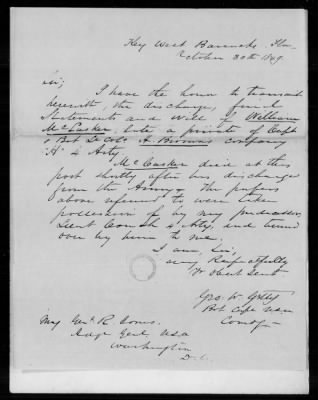 Key West Barracks, Fla.
October 30th 1849.
Sir;
I have the honor to transmit
herewith, the discharge, final
Statements and Will of William
McCasker, late a private of Capt
& Bvt Lt Col. H Browns company
"A" 4 Arty.
McCasker died at this
post shortly after his discharge
from the Army. The papers
above referred to were taken
possession of by my predecessor,
Lieut Couch 4 Arty, and turned
over by him to me.
I am, Sir,
very Respectfully
Yr Obedt Servt.
Geo. W. Getty
Bvt Capt USA
Comdg.
Maj Genl R. Jones.
Adgt Genl USA
Washington
D. C.